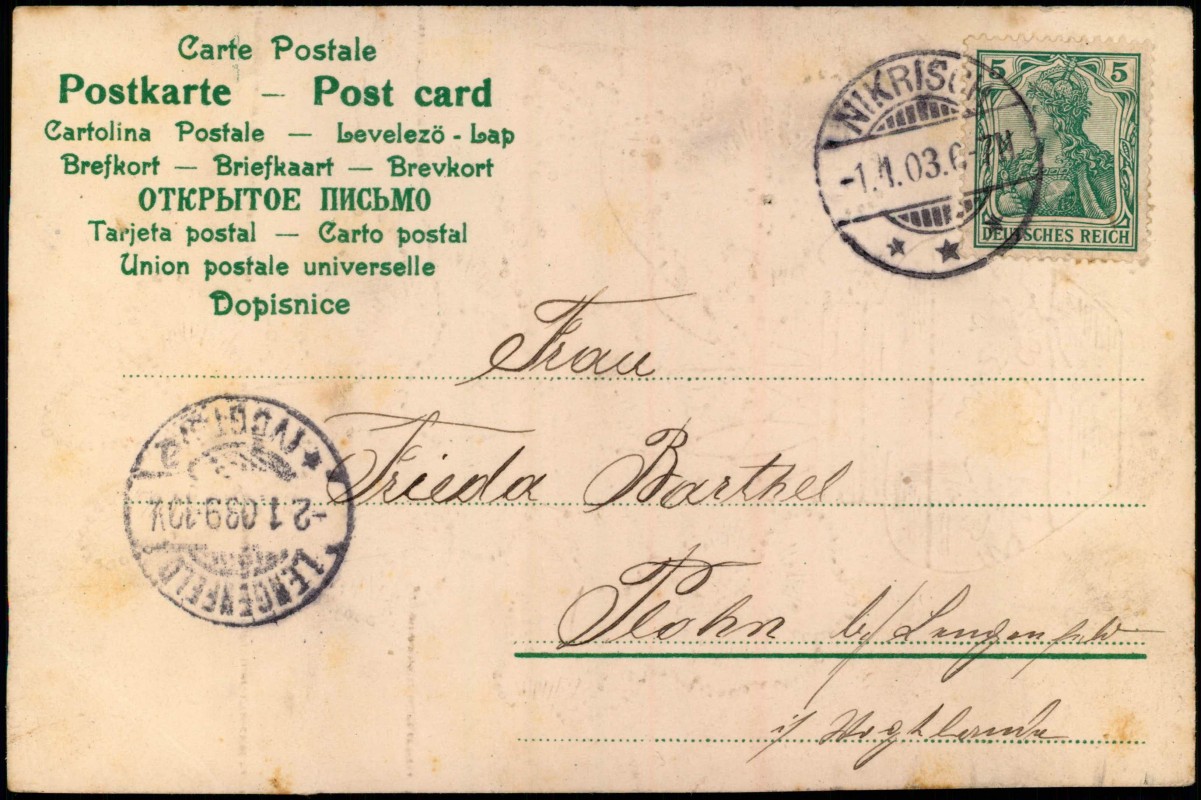 Carte Postale
Postkarte – Post card
Cartolina Postale — Levelezö-Lap
Brefkort — Briefkaart — Brevkort
ОТКРЫТОЕ ПИСЬМО
Tarjeta postal — Carto postal
Union postale universelle
Dopisnice
NIKRISCH
-1.1.03.6-7N
5 5
DEUTSCHES REICH
Frau
Frieda Barthel
Plohn b/ Lengenfeld
i/ Vogtlande
LENGENFELD
-2.1.03.9-10V.
(VOGTL.)